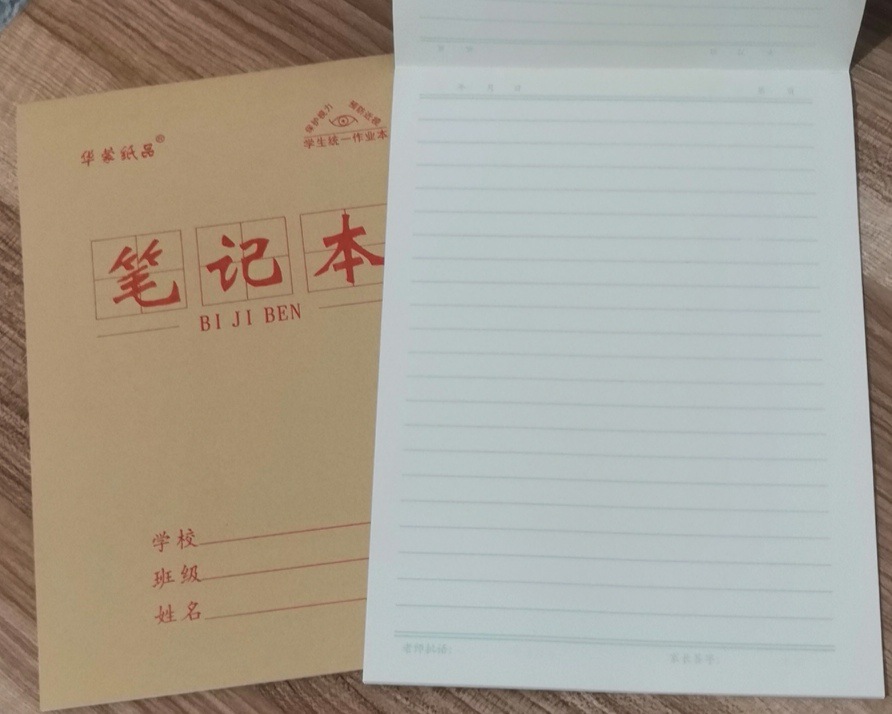 华紫纸品®
保护视力 预防近视
学生统一作业本
笔记本
BI JI BEN
学校
班级
姓名
年 月 日
老师批语:
家长签字: